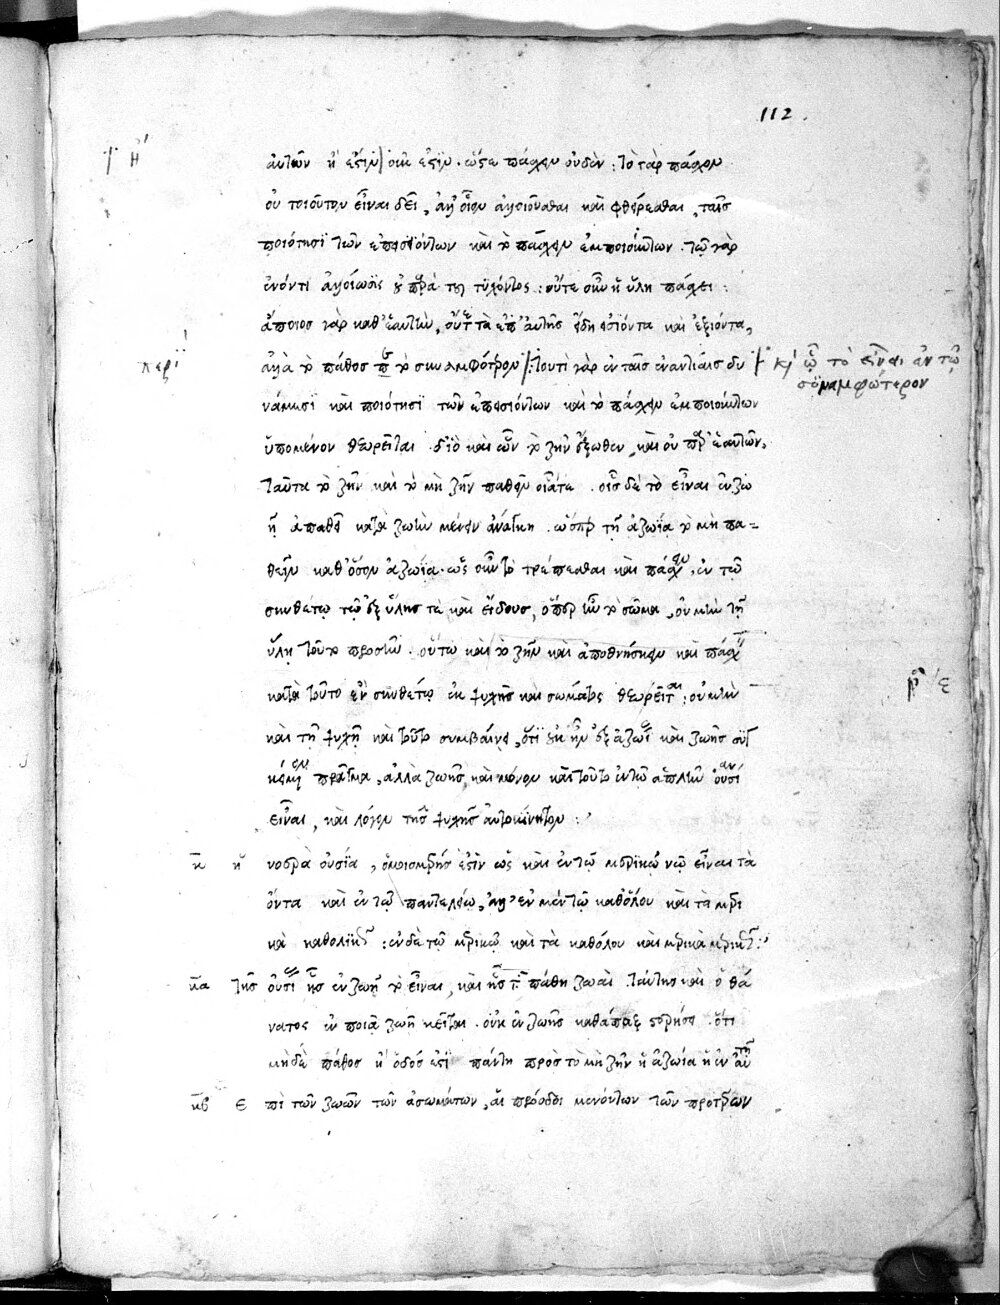 112.
ἢ
αὐτῶν ἢ ἐστὶν οὐκ ἔστιν. ὥστε πάσχειν οὐδὲν: τὸ γὰρ πάσχον
οὐ τοιοῦτον εἶναι δεῖ, ἀλλ' οἷον ἀλλοιοῦσθαι καὶ φθείρεσθαι, ταῖς
ποιότησι τῶν ἐπεισιόντων καὶ τὸ πάσχειν ἐμποιούντων. τῷ γὰρ
ἐνόντι ἀλλοίωσις οὐ παρὰ τοῦ τυχόντος: οὔτε οὖν ἡ ὕλη πάσχει:
ἄποιος γὰρ καθ' ἑαυτήν, οὔτε τὰ ἐπ' αὐτῆς εἴδη εἰσιόντα καὶ ἐξιόντα,
περὶ
ἀλλὰ τὸ πάθος τὸ συναμφότερον τουτὶ γὰρ ἐν ταῖς ἐναντίαις δυ
καὶ ᾧ τὸ εἶναι ἐν τῷ
συναμφότερον
νάμεσι καὶ ποιότησι τῶν ἐπεισιόντων καὶ τὸ πάσχειν ἐμποιούντων
ὑπομένον θεωρεῖται. διὸ καὶ ὧν τὸ ζῆν ἔξωθεν, καὶ οὐ παρ' ἑαυτῶν,
ταῦτα τὸ ζῆν καὶ τὸ μὴ ζῆν παθεῖν οἷά τε. οἷς δὲ τὸ εἶναι ἐν ζωῇ
ἀπαθεῖ κατὰ ζωὴν μένειν ἀνάγκη. ὥσπερ τῇ ἀζωίᾳ τὸ μὴ πα=
θεῖν καθ' ὅσον ἀζωία. ὡς οὖν τὸ τρέπεσθαι καὶ πάσχειν, ἐν τῷ
συνθέτῳ τῷ ἐξ ὕλης τὲ καὶ εἴδους, ὅπερ ἦν τὸ σῶμα, οὐ μὴν τῇ
ὕλῃ τοῦτο προσῆν. οὕτω καὶ τὸ ζῆν καὶ ἀποθνήσκειν καὶ πάσχειν
κατὰ τοῦτο ἐν συνθέτῳ ἐκ ψυχῆς καὶ σώματος θεωρεῖται. οὐ μὴν
καὶ τῇ ψυχῇ κατὰ τοῦτο συμβαίνει, ὅτι οὐκ ἦν ἐξ ἀζωίας καὶ ζωῆς συγ
κείμενον πρᾶγμα, ἀλλὰ ζωῆς, καὶ μόνου κατὰ τοῦτο ἐν τῷ ἁπλῆν οὐσίαν
εἶναι, καὶ λόγον τῆς ψυχῆς αὐτοκίνητον:
κ ἡ νοερὰ οὐσία, ὁμοιομερής ἐστιν ὡς καὶ ἐν τῷ μερικῷ νῷ εἶναι τὰ
ὄντα καὶ ἐν τῷ παντελείῳ, ἀλλ' ἐν μὲν τῷ καθόλου καὶ τὰ μερι
κὰ καθολικῶς: ἐν δὲ τῷ μερικῷ καὶ τὰ καθόλου καὶ μερικὰ μερικῶς:
κα τῆς οὐσίας ἧς ἐν ζωῇ τὸ εἶναι, καὶ ἧς τὰ πάθη ζωαὶ. ταύτης καὶ ὁ θά
νατος ἐν ποιᾷ ζωῇ κεῖται. οὐκ ἐν ζωῆς καθάπαξ στερήσει. ὅτι
μηδὲ πάθος ἡ ὁδός ἐστι πάντη πρὸς τὸ μὴ ζῆν ἡ ἀζωία ἡ ἐν αὐτῇ
κβ ἐπὶ τῶν ζωῶν τῶν ἀσωμάτων, αἱ πρόοδοι μενόντων τῶν προτέρων